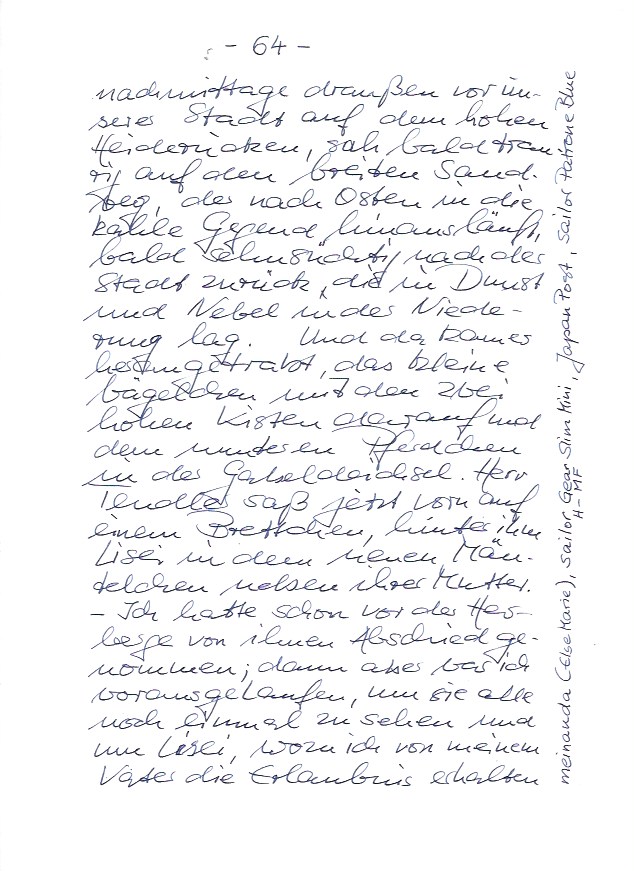 - 64 -
nachmittage draußen vor un-
serer Stadt auf dem hohen
Heiderücken, sah bald trau-
rig auf den breiten Sand-
weg, der nach Osten in die
kahle Gegend hinausläuft,
bald sehnsüchtig nach der
Stadt zurück, die in Dunst
und Nebel in der Niede-
rung lag. Und da kam es
herangetrabt, das kleine
Wägelchen mit den zwei
hohen Kisten darauf und
dem munteren Pferdchen
in der Gabeldeichsel. Herr
Tendler saß jetzt vorn auf
einem Brettchen, hinter ihm
Lisei in dem neuen Män-
telchen neben ihrer Mutter.
– Ich hatte schon vor der Her-
berge von ihnen Abschied ge-
nommen; dann aber war ich
vorausgelaufen, um sie alle
noch einmal zu sehen und
um Lisei, wozu ich von meinem
Vater die Erlaubnis erhalten
meinanda (Else Marie), Sailor Gear Slim Mini, Japan Post, Sailor Patrone Blue
H-MF